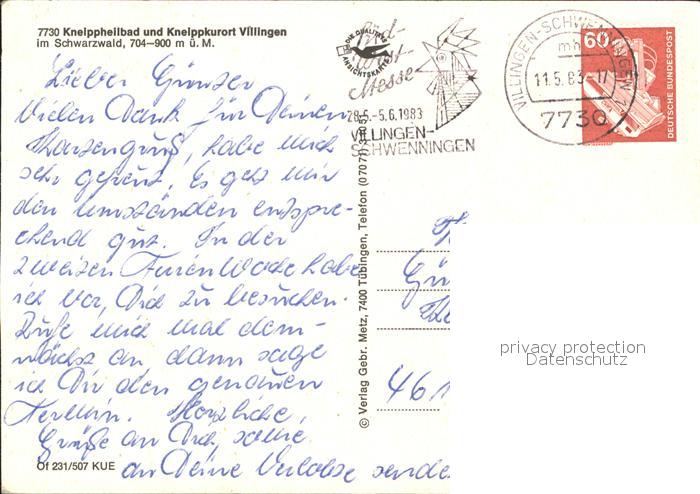 7730 Kneippheilbad und Kneippkurort Villingen
im Schwarzwald, 704–900 m ü. M.
Lieber Günter
Vielen Dank für Deinen
Kartengruß, habe mich
sehr gefreut. Es geht mir
den Umständen entspre-
chend gut. In der
zweiten Ferienwoche habe
ich vor, Dich zu besuchen.
Rufe mich mal dem-
nächst an dann sage
ich Dir den genauen
Termin. Herzliche
Grüße an Dich, sowie
an Deine Verlobte sende
Of 231/507 KUE
DIE QUALITÄTS
ANSICHTSKARTE
Süd-
West
Messe
28.5.-5.6.1983
VILLINGEN-
SCHWENNINGEN
VILLINGEN-SCHWENNINGEN 1
mh
11.5.83-17
7730
60
DEUTSCHE BUNDESPOST
© Verlag Gebr. Metz, 7400 Tübingen, Telefon (07071)
Gü
461
privacy protection
Datenschutz